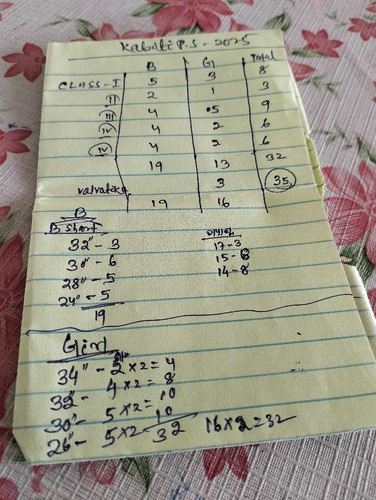 Kabali P.S - 2025
B G Total
CLASS - I 5 3 8
II 2 1 3
III 4 5 9
IV 4 2 6
IV 4 2 6
19 13 32
3 35
19 16
B
B Short
32" - 3
30" - 6
28" - 5
24" - 5
19
17 - 3
15 - 8
14 - 8
Girl
34" - 2 x 2 = 4
32" - 4 x 2 = 8
30" - 5 x 2 = 10
26" - 5 x 2 10
32 16 x 2 = 32